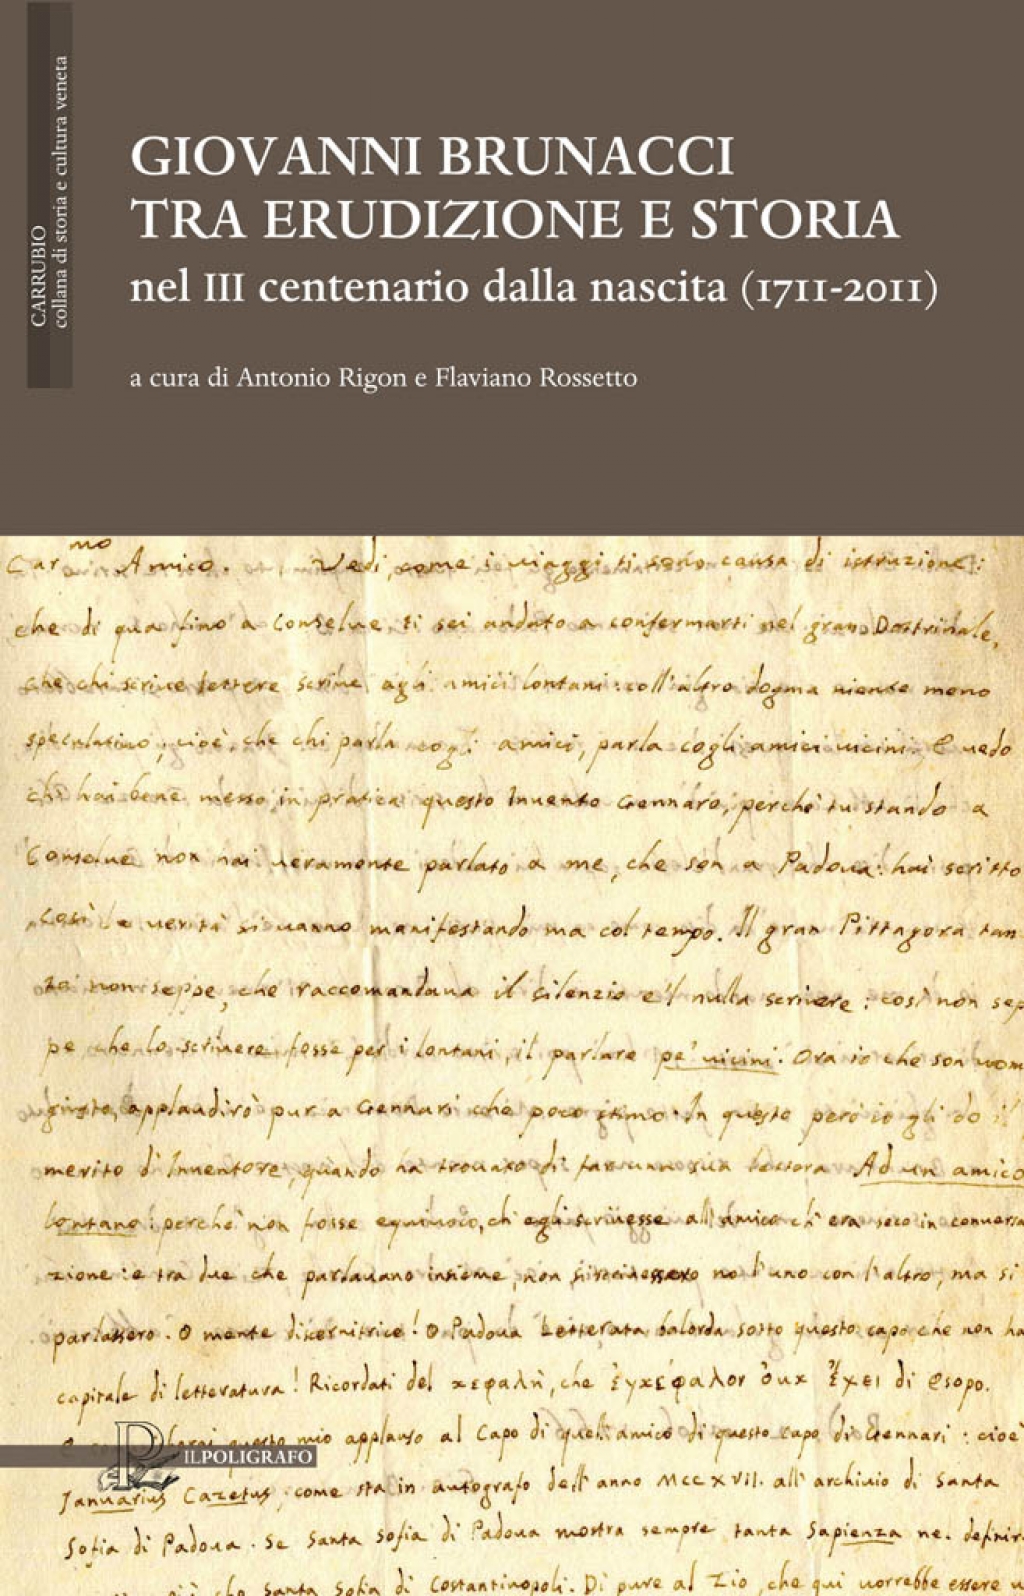 CARRUBIO
collana di storia e cultura veneta
GIOVANNI BRUNACCI
TRA ERUDIZIONE E STORIA
nel III centenario dalla nascita (1711-2011)
a cura di Antonio Rigon e Flaviano Rossetto
Car mo Amico. Vedi, come i viaggi ti sono causa di istruzione:
che di qua fino a Conselve ti sei andato a confermarti nel gran Dottrinale,
che chi scrive lettere scrive agli amici lontani: coll'altro dogma niente meno
speculativo, cioè, che chi parla cogli amici, parla cogli amici vicini. E vedo
ch' hai bene messo in pratica questo Invento Gennaro, perchè tu stando a
Conselve non hai veramente parlato a me, che son a Padova: hai scritto
Così le verità si vanno manifestando ma col tempo. Il gran Pittagora tan
to non seppe, che raccomandava il silenzio e'l nulla scrivere: così non sep
pe che lo scrivere fosse per i lontani, il parlare pe' vicini. Ora io che son uom
giusto, applaudirò pur a Gennari che poco stimo. In questo però io gli do il
merito d'Inventore, quando ha trovato di far una sua lettera Ad un amico
lontano: perchè non fosse equivoco, ch'egli scrivesse all'amico ch'era seco in conversa
zione: e tra due che parlavano insieme, non si no l'uno con l'altro, ma si
parlassero. O mente discernitrice! O Padova Letterata balorda sotto questo capo che non ha
capitale di letteratura! Ricordati del κεφαλὴ, che ἐγκέφαλον οὐκ ἔχει di Esopo.
questo mio applauso al Capo di quell'amico di questo capo di Gennari: cioè
Januarius Cazetus, come sta in autografo dell'anno MCCXVII. all'archivio di Santa
Sofia di Padova. Se Santa Sofia di Padova mostra sempre tanta Sapienza ne. definir
che Santa Sofia di Costantinopoli. Di pure al Zio, che qui vorrebbe essere
ILPOLIGRAFO